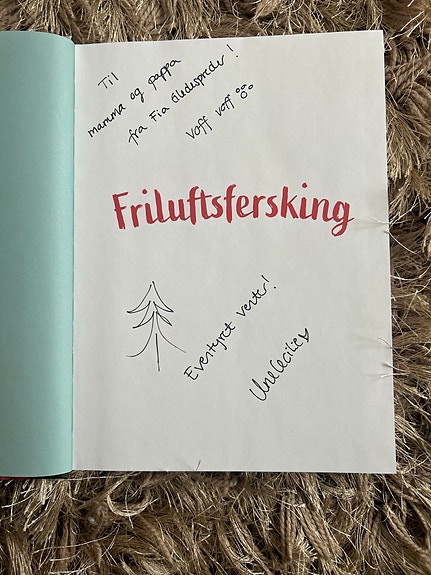 Til
mamma og pappa
fra Fia Gledesspreder!
Voff voff
Friluftsfersking
Eventyret venter!
Une Cecilie